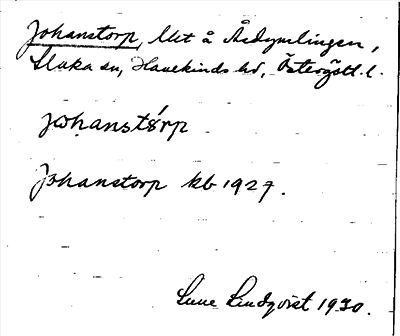 Johanstorp, lht å Åsdymlingen,
Slaka sn, Hanekinds hd, Östergötl. l.
johanstórp
Johanstorp kb 1927.
Sune Lindqvist 1930.